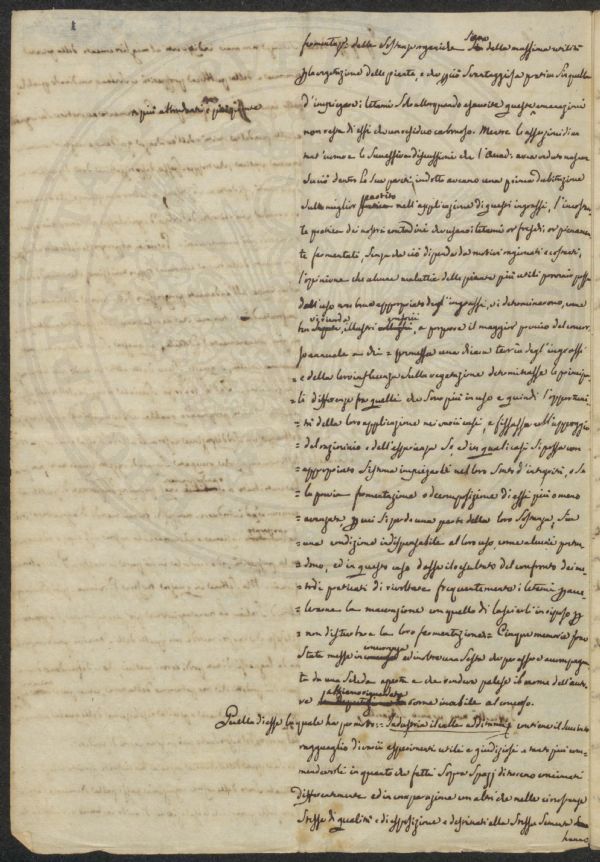 1
fermentaz: delle sostanze organiche sono della massima utilità
alla vegetazione delle piante, e che più svantaggiosa pratica sia quella
d'impiegare i letami solo allorquando esaurite queste emanazioni
non resta di essi che un residuo carbonoso. Mentre le asserzioni di un
tant'uomo e le successive discussioni che l'Accad: avea veduto nascere
su ciò dentro le sue pareti, indotto aveano una prima dubitazione
sulla miglior partito nell'applicazione di questi ingrassi, l'incostan
te pratica dei nostri contadini che usano i letami or freschi, or pienamen
te fermentati, senza che ciò dipenda da motivi ragionati e costanti,
l'opinione che alcune malattie delle piante più utili provenir possa
dall'uso non bene appropriato degl'ingrassi, vi determinarono, come
illustri e propose il maggior premio del concor
so annuale a chi = premessa una chiara teoria degl'ingrassi
= e della loro influenza sulla vegetazione determinasse le principa-
li differenze fra quelli che sono più in uso e quindi l'opportuni
= tà della loro applicazione nei varii casi, e fissasse coll'appoggio
= del raziocinio e dell'esperienza se ed in quali casi si possa con
= appropriato sistema impiegarli nel loro stato d'integrità, o se
= la previa fermentazione o decomposizione di essi più o meno
= avanzata, per cui si perde una parte della loro sostanza, sia
= una condizione indispensabile al loro uso, come alcuni preten
= dono, ed in questo caso desse il risultato del confronto dei me
= todi praticati di rivoltare frequentemente i letami per acce
= lerarne la macerazione con quello di lasciarli in riposo per
= non disturbare la loro fermentazione = Cinque memorie sono
state messe in concorso ed inoltre una sesta che per essere accompagna
ta da una scheda aperta e che rendeva palese il nome dell'auto
re come inabile al concorso.
Quella di esse la quale ha per motto = Industria il calle = contiene il succinto
ragguaglio di varii esperimenti utili e giudiziosi e tanto più com-
mendevoli in quanto che fatti sopra spazj di terreno concimati
differentemente ed in comparazione con altri che nelle circostanze
stesse di qualità e di esposizione e destinati alla stessa semente
hanno